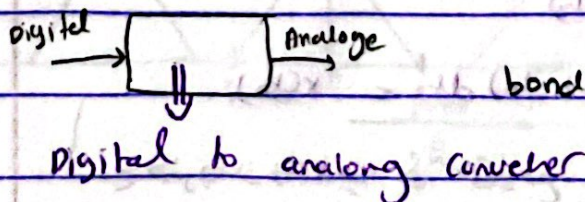 Digital Analoge
bond
Digital to analong converher